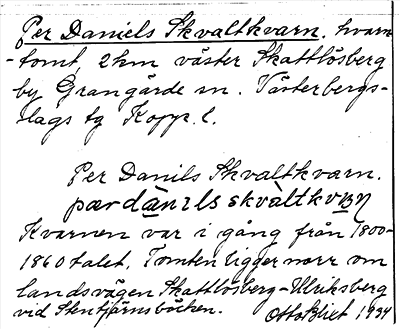 Per Daniels Skvaltkvarn. kvarn
-tomt, 2 km väster Skattlösberg
by Grangärde sn. Västerbergs-
lags tg Kopp. l.
Per Danils Skvaltkvarn.
pær dànɩls skvàltkvɑɳ
Kvarnen var i gång från 1800-
1860 talet. Tomten ligger norr om
landsvägen Skattlösberg-Ulriksberg
vid Stentjärnsbäcken. Otto Blixt 1934